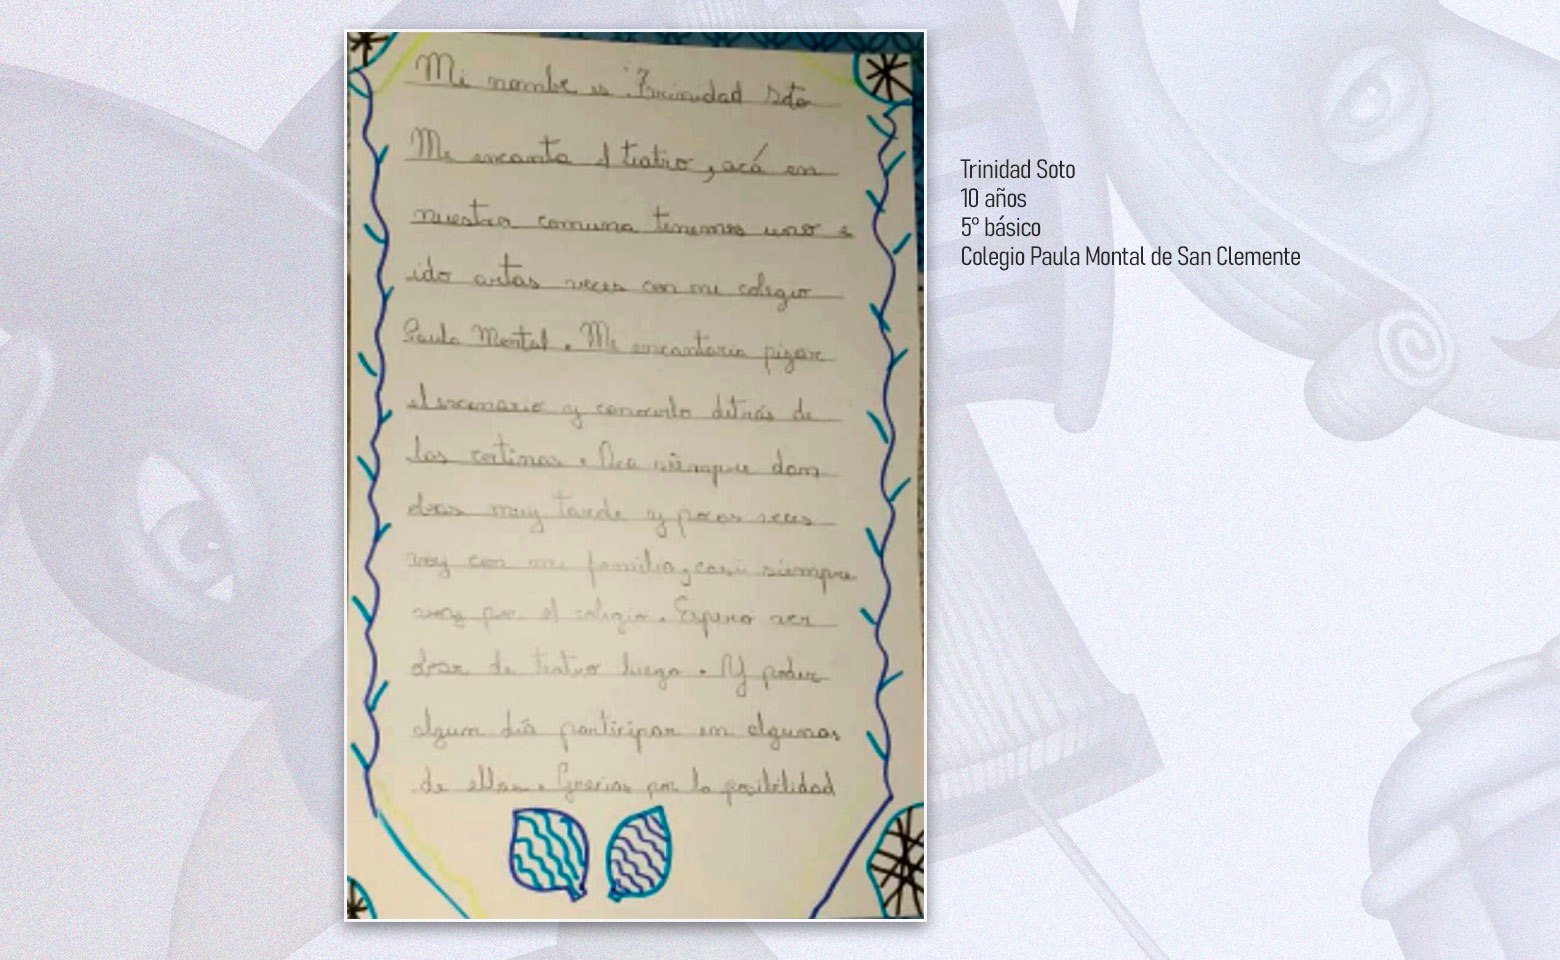 Mi nombre es Trinidad Soto
Me encanta el teatro, acá en
nuestra comuna tenemos uno e
ido artas veces con mi colegio
Paula Montal. Me encantaria pizar
el escenario y conocerlo detrás de
las cortinas. Acá siempre dan
obras muy tarde y pocas veces
voy con mi familia, casi siempre
voy por el colegio. Espero ver
obras de teatro luego. Y poder
algun día participar en algunas
de ellas. Gracias por la posibilidad
Trinidad Soto
10 años
5º básico
Colegio Paula Montal de San Clemente